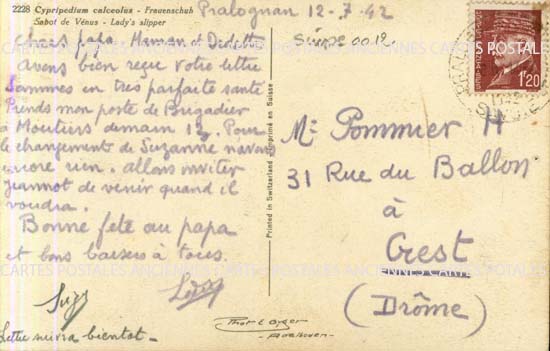 2228 Cypripedium calceolus - Frauenschuh
Sabot de Vénus - Lady's slipper
Pralognan 12-7-42
Chers papa, Maman et Dédette
Avons bien reçu votre lettre
Sommes en très parfaite santé
Prends mon poste de Brigadier
à Moutiers demain 13. Pour
le changement de Suzanne n'avons
encore rien. allons inviter
jeannot de venir quand il
voudra.
Bonne fête au papa
et bons baisers à tous.
Lettre suivra bientot -
Printed in Switzerland - Imprimé en Suisse
1F20
Mr Pommier H
31 Rue du Ballon
à
Crest
(Drôme)
CARTES POSTALES ANCIENNES